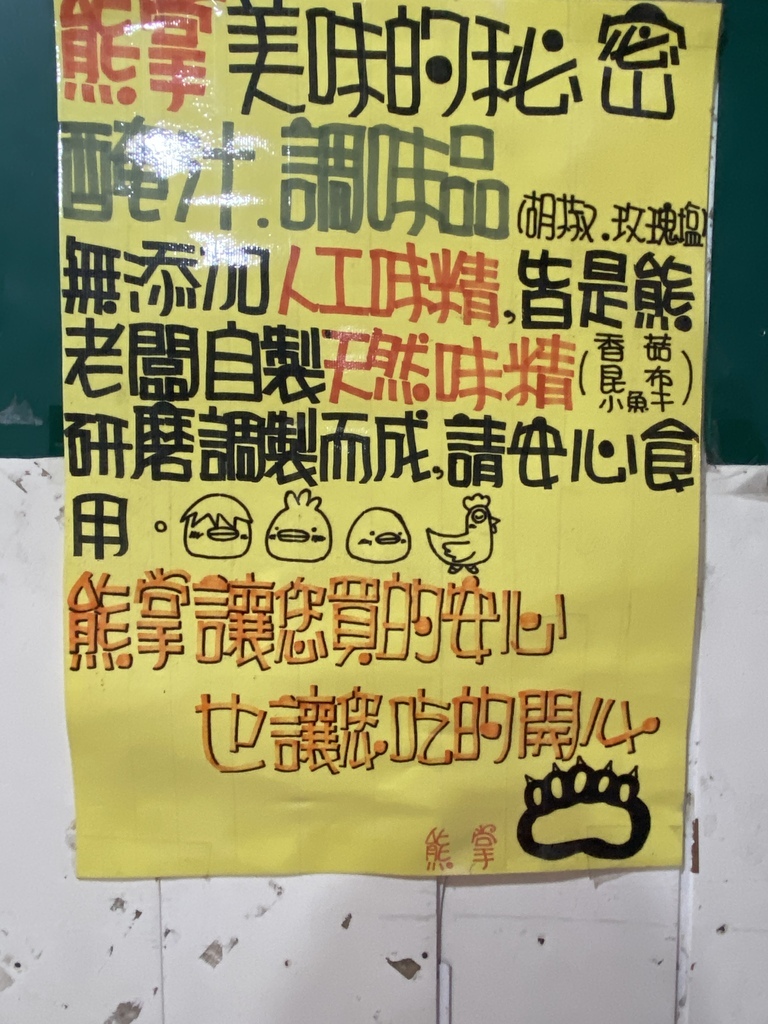 熊掌美味的秘密
醃汁.調味品(胡椒.玫瑰塩)
無添加人工味精,皆是熊
老闆自製天然味精(香菇昆布小魚干)
研磨調製而成,請安心食
用。
熊掌讓您買的安心
也讓您吃的開心
熊掌